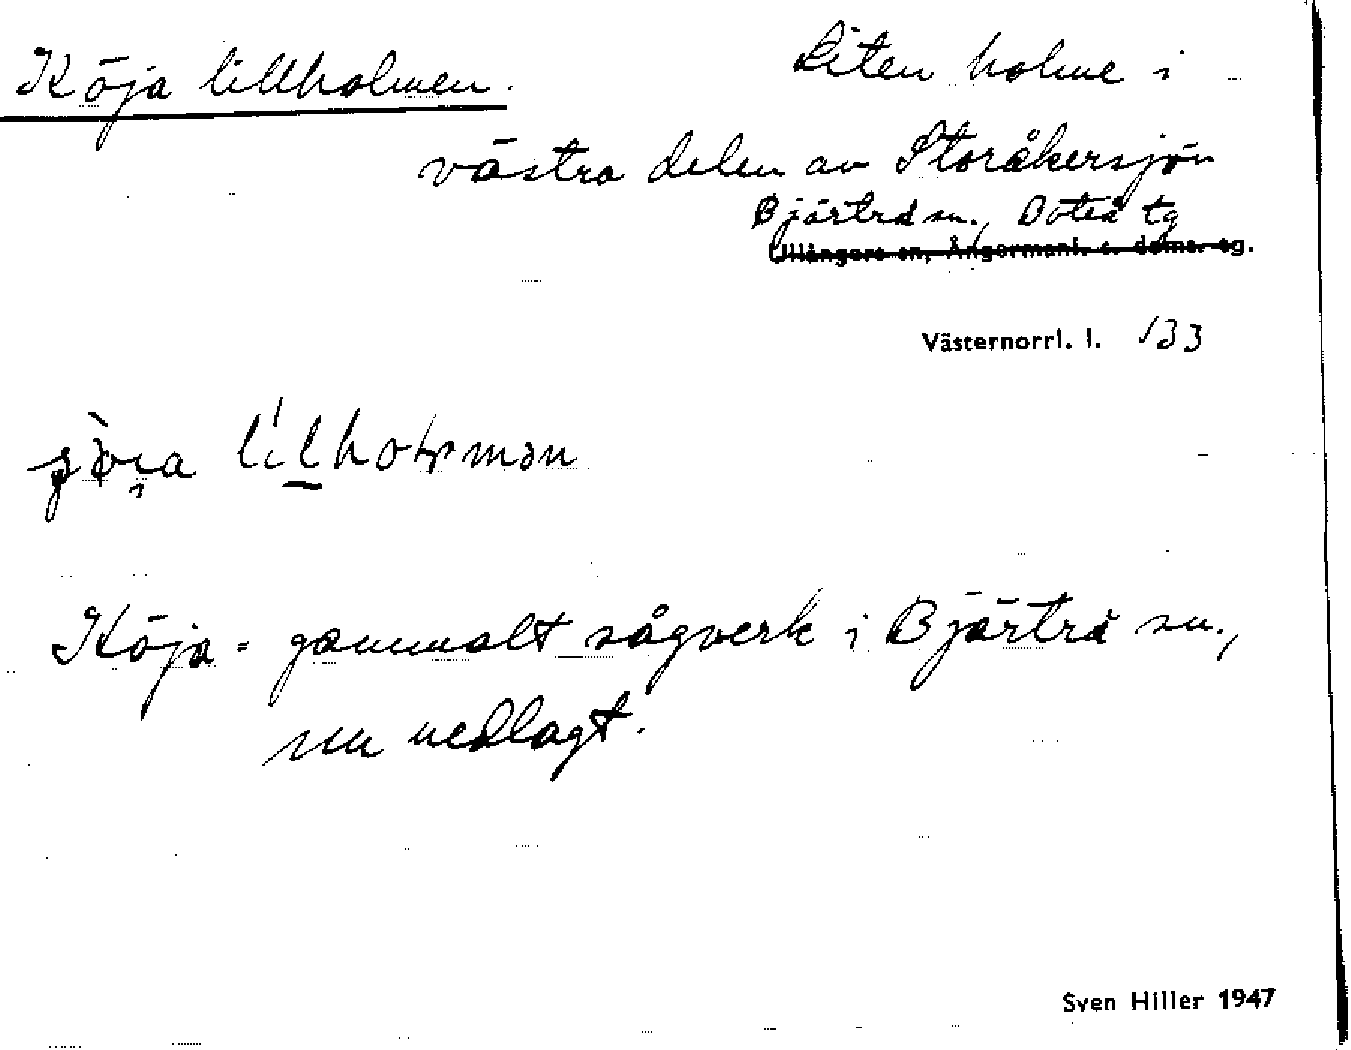 Köja lillholmen.
Liten holme i
västra delen av Storåkersjön
Bjärtrå sn., Boteå tg
Ullångers sn, Ångermanl. s. doms. tg.
Västernorrl. l. 133
lilholmən
Köja = gammalt sågverk i Bjärtrå sn.,
nu nedlagt.
Sven Hiller 1947